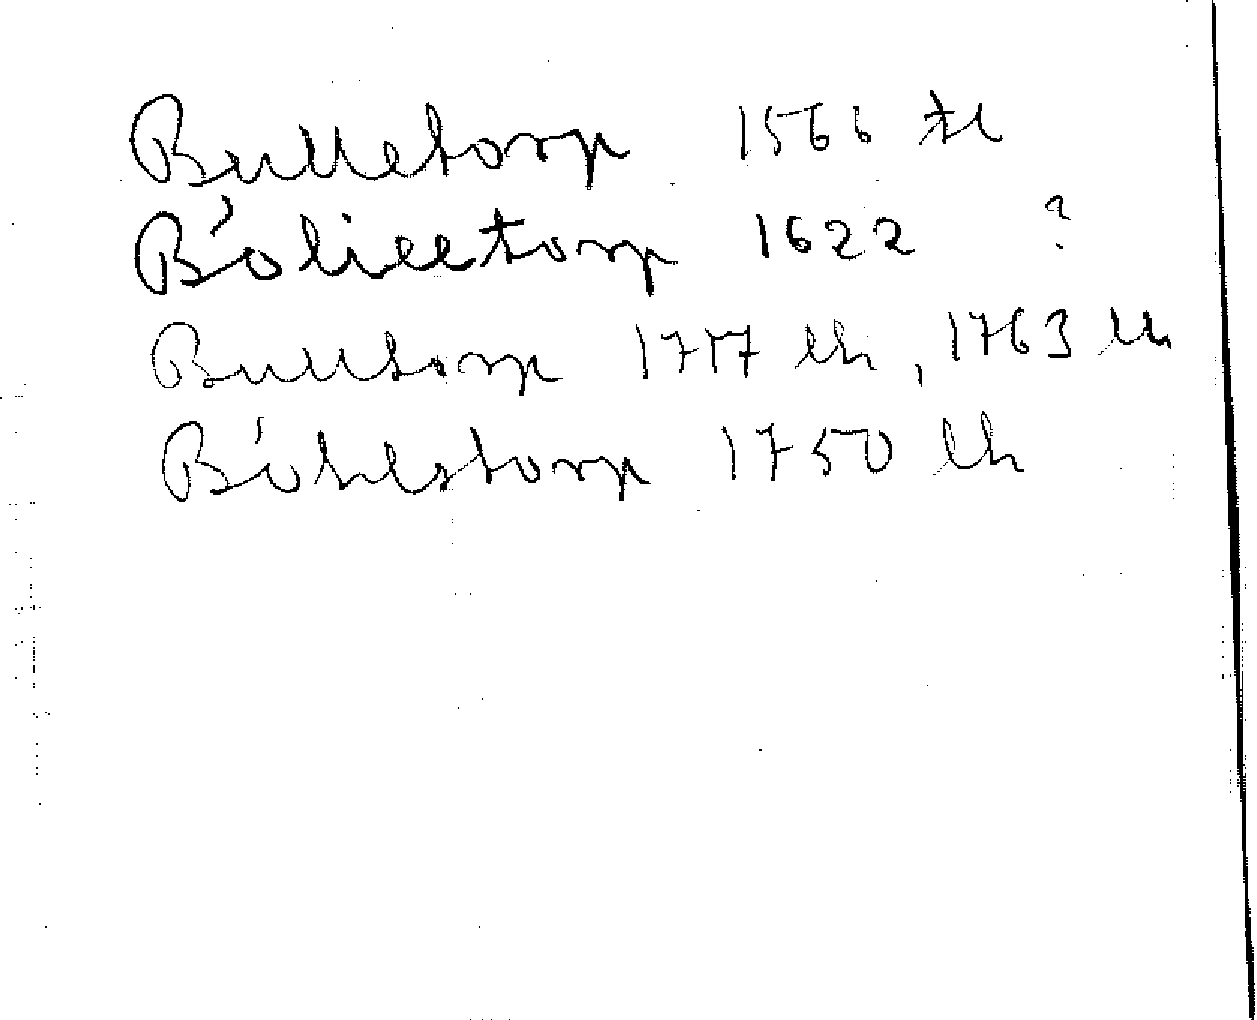 Bulletorp 1566 tl
Bölicetorp 1622 ?
Bulltorp 1717 lh, 1763 lh
Böhlstorp 1750 lh